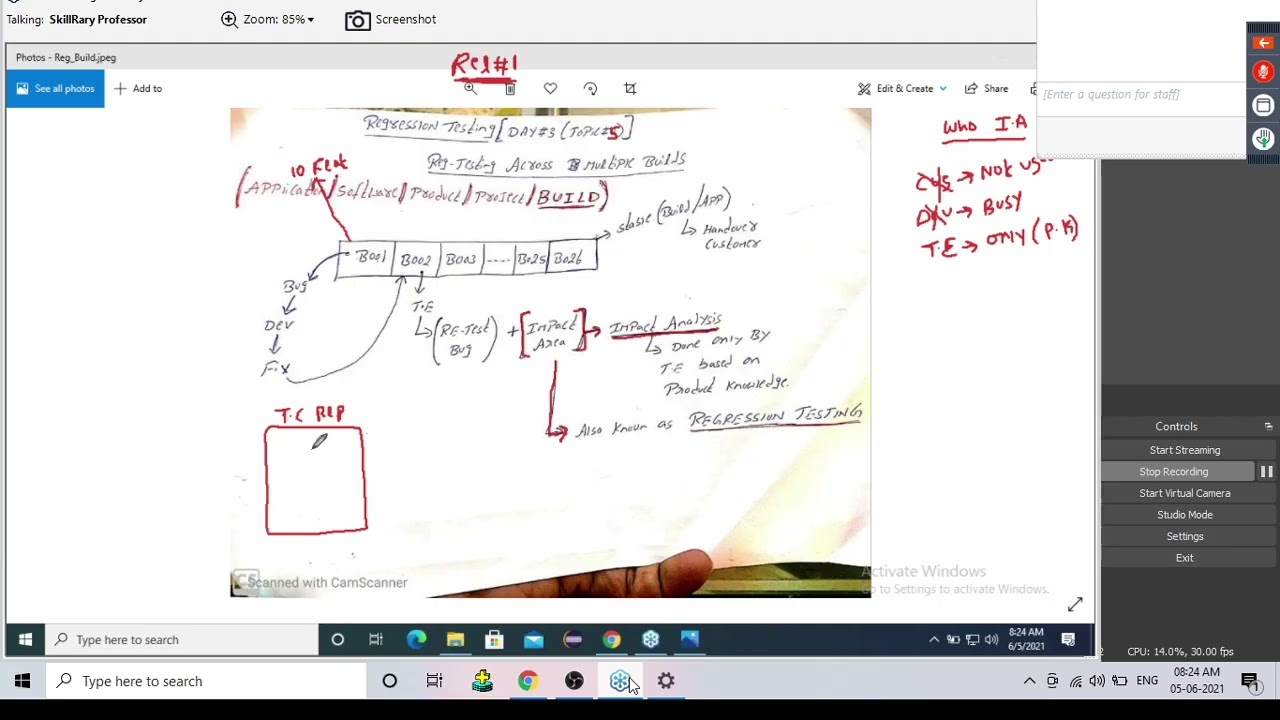 Talking: SkillRary Professor
Zoom: 85%
Screenshot
Photos - Reg_Build.jpeg
See all photos
Add to
Reg#1
Edit & Create
Share
[Enter a question for staff]
Regression Testing [DAY#3 (TOPIC#5)]
Reg-Testing Across Multiple Builds
10 Feat
(Application/Software/Product/Project/BUILD)
stable (Build/APP)
Handover
Customer
B001 B002 B003 ---- B025 B026
Bug
Dev
Fix
T.E
(RE-Test Bug) + [Impact Area]
Impact Analysis
Done only By
T.E based on
Product Knowledge.
Also known as REGRESSION TESTING
T.C REP
Who I.A
CUS → NOT
→ BUSY
T.E → ONLY (P.K)
CS Scanned with CamScanner
Activate Windows
Go to Settings to activate Windows.
Controls
Start Streaming
Stop Recording
Start Virtual Camera
Studio Mode
Settings
Exit
CPU: 14.0%, 30.00 fps
Type here to search
8:24 AM
6/5/2021
Type here to search
ENG
08:24 AM
05-06-2021